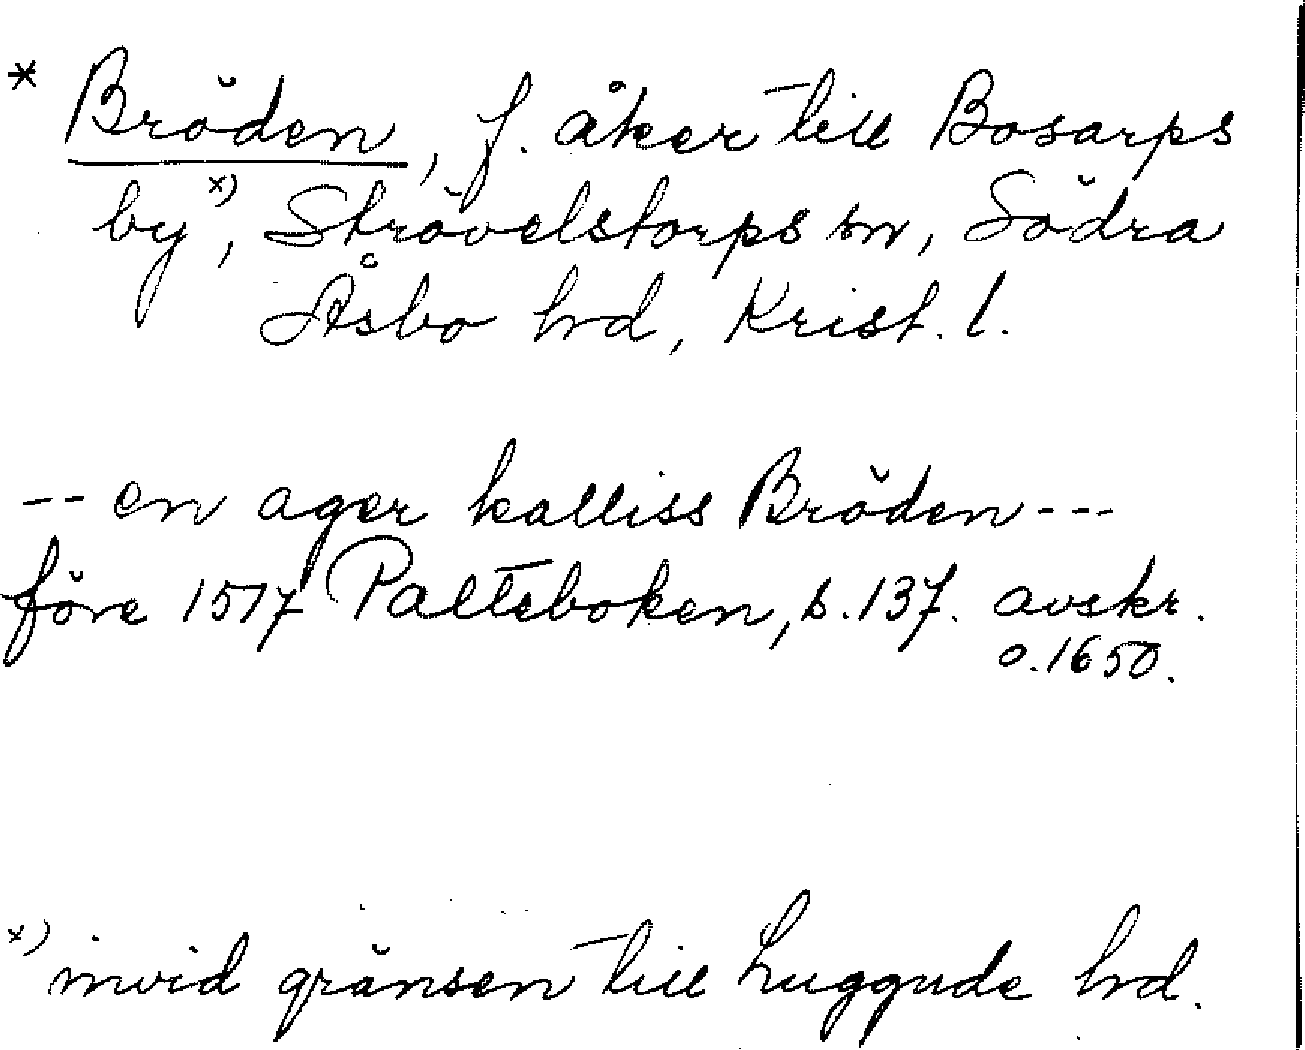 * Bröden, f. åker till Bosarps
by x), Strövelstorps sn, Södra
Åsbo hd, Krist. l.
-- en ager kalliss Bröden ---
före 1517 Palteboken, s. 137. avskr.
o. 1650.
x) invid gränsen till Luggude hd.